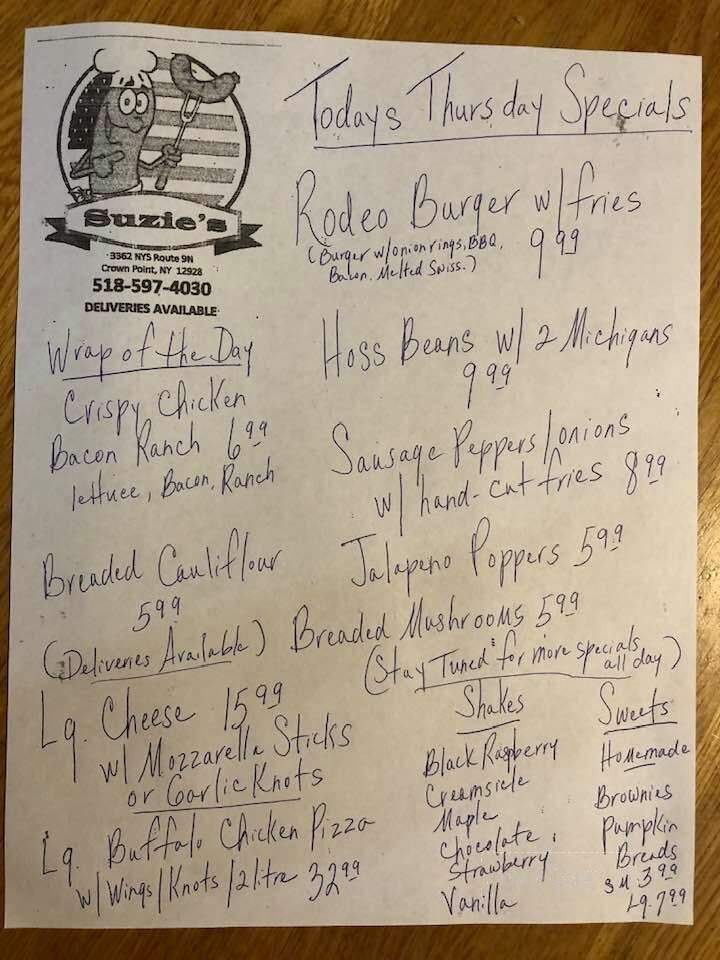 Suzie's
3362 NYS Route 9N
Crown Point, NY 12928
518-597-4030
DELIVERIES AVAILABLE
Todays Thursday Specials
Rodeo Burger w/fries
(Burger w/onion rings, BBQ,
Bacon, Melted Swiss.)
9.99
Hoss Beans w/ 2 Michigans
9.99
Sausage Peppers/onions
w/ hand-cut fries 8.99
Jalapeno Poppers 5.99
Breaded Mushrooms 5.99
(Stay Tuned for more specials
all day)
Wrap of the Day
Crispy Chicken
Bacon Ranch 6.99
lettuce, Bacon, Ranch
Breaded Cauliflour
5.99
(Deliveries Available)
Lg. Cheese 15.99
w/ Mozzarella Sticks
or Garlic Knots
Lg. Buffalo Chicken Pizza
w/ Wings/Knots/2 litre 32.99
Shakes
Black Raspberry
Creamsicle
Maple
Chocolate
Strawberry
Vanilla
Sweets
Homemade
Brownies
Pumpkin
Breads
SM. 3.99
Lg. 7.99